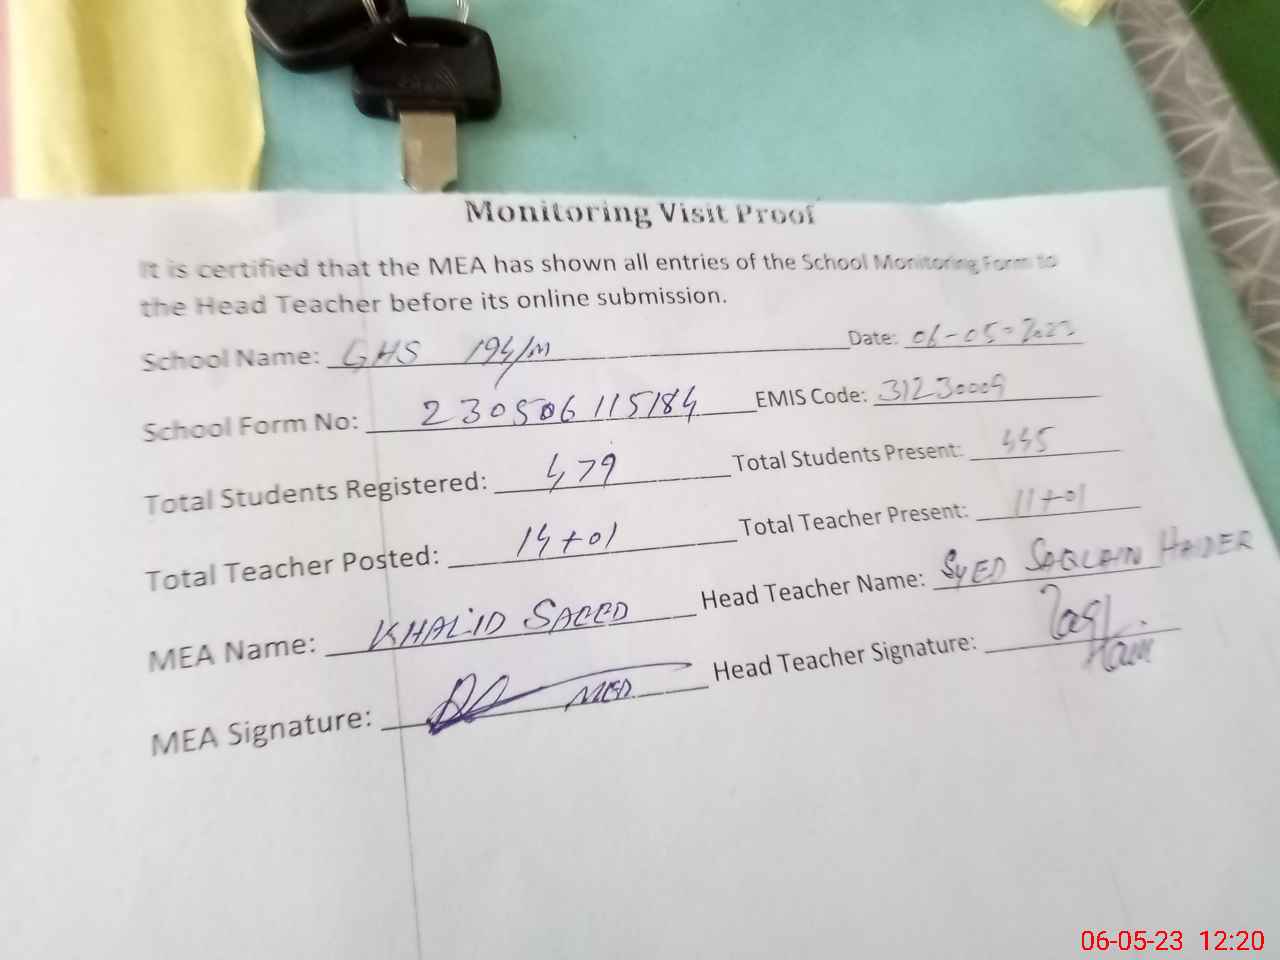 Monitoring Visit Proof
It is certified that the MEA has shown all entries of the School Monitoring Form to
the Head Teacher before its online submission.
School Name: GHS 194/M Date: 06-05-2023
School Form No: 230506115184 EMIS Code: 31230009
Total Students Registered: 479 Total Students Present: 445
Total Teacher Posted: 14+01 Total Teacher Present: 11+01
MEA Name: KHALID SAEED Head Teacher Name: SYED SAQLAIN HAIDER
MEA Signature: Head Teacher Signature:
06-05-23 12:20